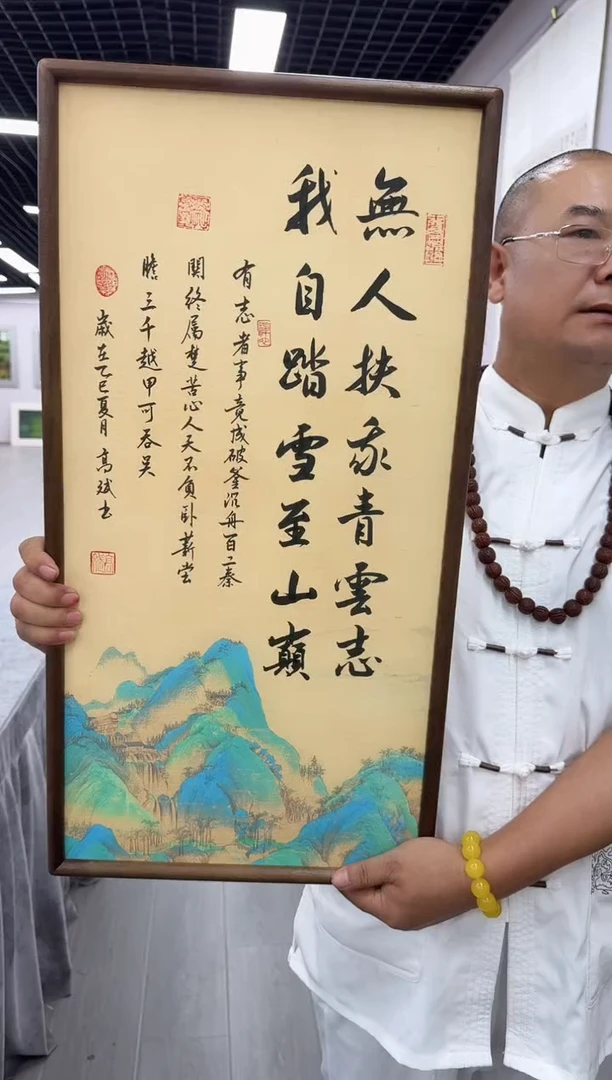 無人扶我青雲志
我自踏雪至山巔
有志者事竟成破釜沉舟百二秦
関終属楚苦心人天不負卧薪嘗
膽三千越甲可吞吴
歲在乙巳夏月 高斌书